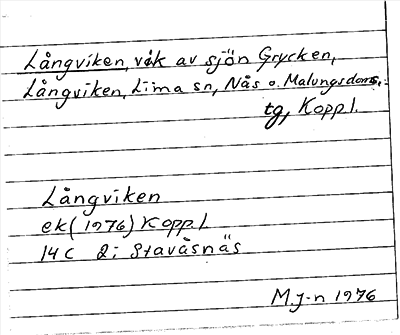 Långviken, vik av sjön Grycken,
Långviken, Lima sn, Nås o. Malungsdoms.
tg, Koppl.
Långviken
ek (1976) Koppl.
14 C 2i Stavåsnäs
M.J-n 1976